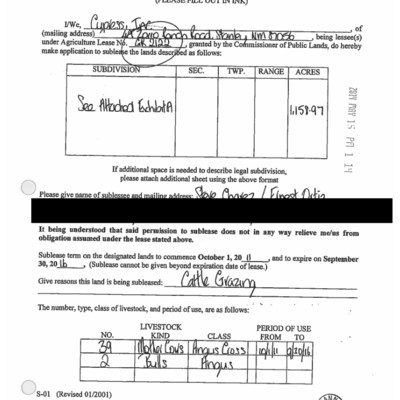 (PLEASE FILL OUT IN INK)
I/We, Cypress, Inc , of
(mailing address) Ranch Road, Stanley, NM 87056 , being lessee(s)
under Agriculture Lease No. GR 2122 , granted by the Commissioner of Public Lands, do hereby
make application to sublease the lands described as follows:
SUBDIVISION SEC. TWP. RANGE ACRES
See Attached Exhibit A 1,158.97
2014 MAY 15 PM 1 14
If additional space is needed to describe legal subdivision,
please attach additional sheet using the above format
Please give name of sublessee and mailing address: Steve / Ernest Ortiz
It being understood that said permission to sublease does not in any way relieve me/us from
obligation assumed under the lease stated above.
Sublease term on the designated lands to commence October 1, 20 11 , and to expire on September
30, 20 16 , (Sublease cannot be given beyond expiration date of lease.)
Give reasons this land is being subleased: Cattle Grazing
The number, type, class of livestock, and period of use, are as follows:
LIVESTOCK PERIOD OF USE
NO. KIND CLASS FROM TO
39 Mother Cows Angus Cross 10/1/11 9/30/16
2 Bulls Angus
S-01 (Revised 01/2001)